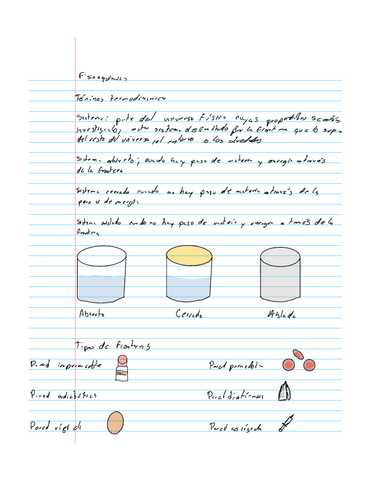 Fisicoquímica
Términos termodinámicos
Sistema: parte del universo física cuyas propiedades se están
investigando, este sistema delimitado por la frontera que lo separa
del resto del universo, el entorno o los alrededores
Sistema abierto; cuando hay paso de materia y energía a través
de la frontera
Sistema cerrado cuando no hay paso de materia a través de la
pero sí de energía
Sistema aislado cuando no hay paso de materia y energía a través de la
frontera
Abierto Cerrado Aislado
Tipos de fronteras
Pared impermeable Pared permeable
Pared adiabática Pared diatérmica
Pared rígida Pared no rígida